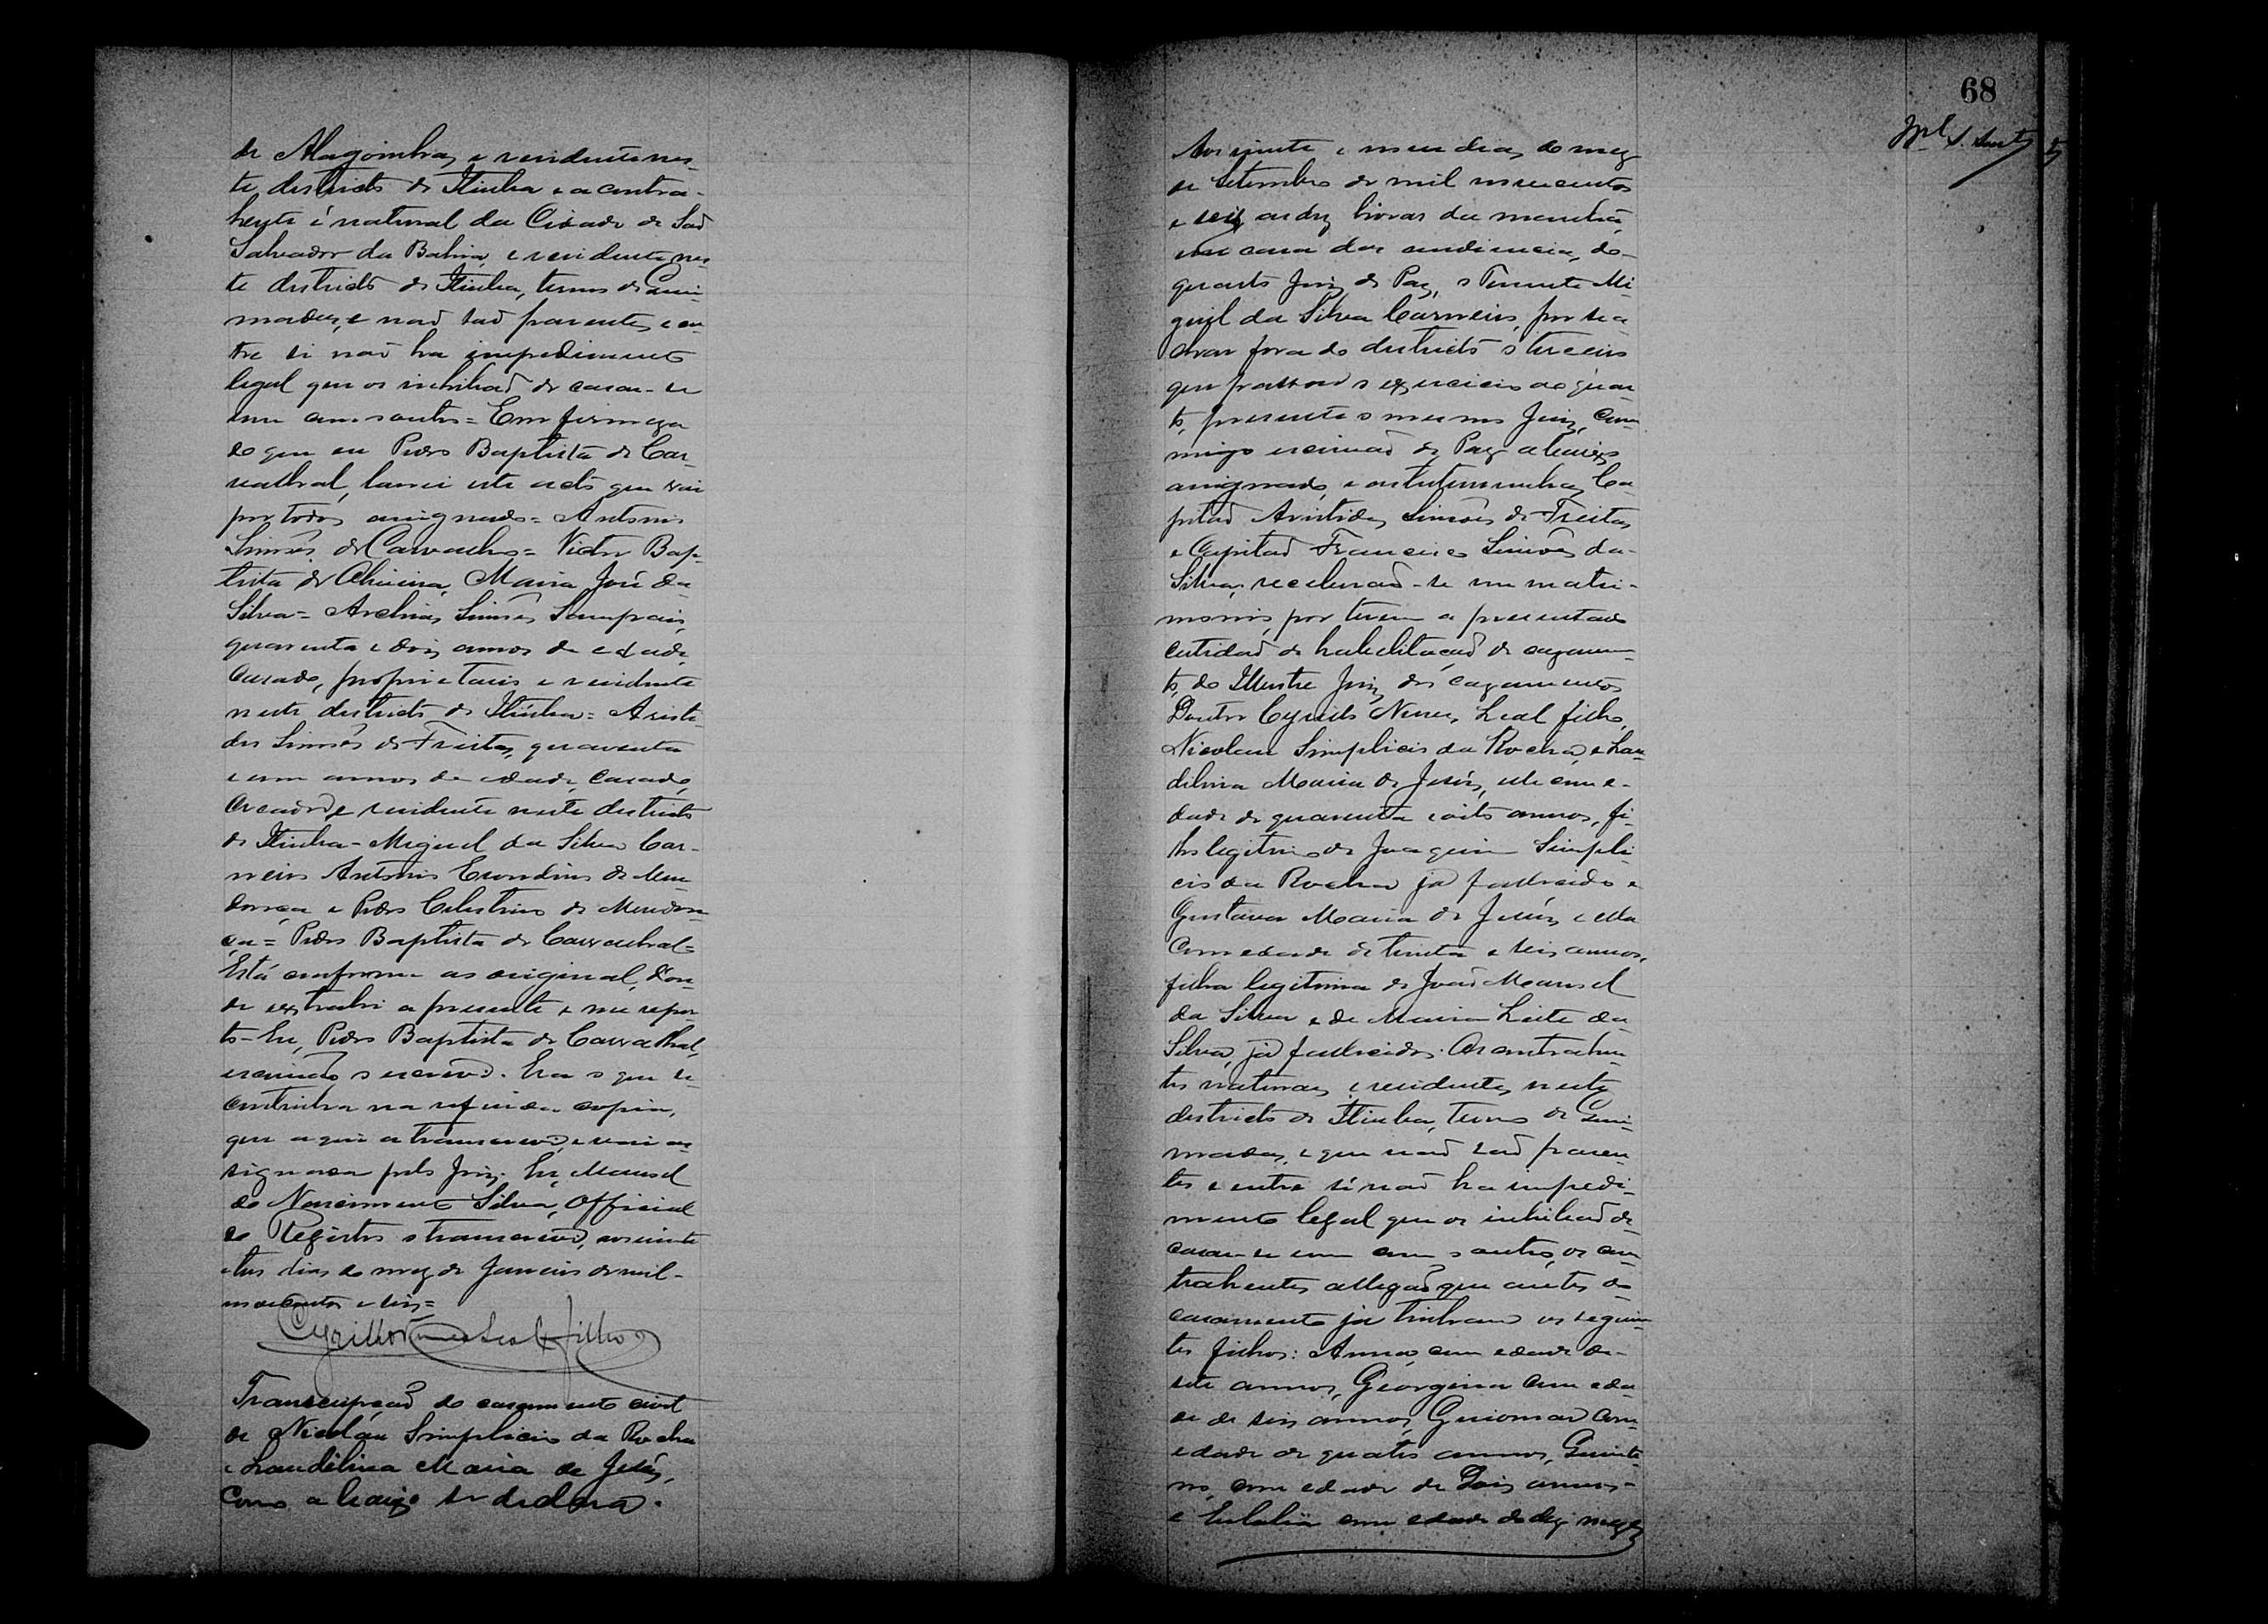 de Alagoinhas e residente nes-
te districto de Itiuba e a contra-
hente é natural da Cidade de Saõ
Salvador da Bahia, e residente nes-
te districto de Itiuba, termo de Quei-
madas, e naõ saõ parentes e en-
tre si naõ ha impedimento
legal que os inhibaõ de casar-se
um com o outro = Em firmeza
do que eu Pedro Baptista de Car-
valhal, lavrei este acto que vai
por todos assignado = Antonio
Simões de Carvalho = Victor Bap-
tista de Oliveira, Maria José da
Silva = Archias Simões Sampaio,
quarenta e dois annos de edade,
Casado, proprietario e residente
neste districto de Itiuba = Aristi-
des Simões de Freitas, quarenta
e um annos de edade, casado,
Creador e residente neste districto
de Itiuba - Miguel da Silva Car-
neiro Antonio Erondino de Men-
donça e Pedro Celestino de Mendon-
ça = Pedro Baptista de Carvalhal =
Está conforme ao original, don-
de extrahi a presente e me repor-
to - Eu, Pedro Baptista de Carvalhal,
escrivaõ o escrevi. Era o que se
continha na referida copia,
que aqui a transcrevi, e vai as-
signada pelo Juiz. Eu, Manoel
do Nascimento Silva, Official
do Registro o transcrevi, aos vinte
e tres dias do mez de Janeiro de mil-
novecentos e seis =
Cyrillo Nunes Leal filho
Transcripçaõ do casamento civil
de Nicoláu Simplicio da Rocha
e Laudilina Maria de Jesús,
como abaixo se declara.
68
Aos vinte e nove dias do mez
de Setembro de mil novecentos
e seis as dez horas da manhã,
em casa das audiencia, do
quarto Juiz de Paz, o Tenente Mi-
guel da Silva Carneiro, por se a-
char fora do districto o terceiro
que passou o exercicio ao quar-
to, presente o mesmo Juiz, com-
migo escrivaõ de Paz abaixo
assignado, e as testemunhas Ca-
pitaõ Aristides Simões de Freitas
e Capitaõ Francisco Simões da
Silva, receberaõ-se em matri-
monio, por terem apresentado
certidaõ de habilitaçaõ de casamen-
to, do Illustre Juiz dos casamentos
Doutor Cyrillo Nunes Leal filho,
Nicolau Simplicio da Rocha, e Lau-
dilina Maria de Jesús, elle com e-
dade de quarenta e oito annos, fi-
lho legitimo de Joaquim Simpli-
cio da Rocha já fallecido e
Gustava Maria de Jesús e ella
com edade de trinta e seis annos,
filha legitima de Joaõ Manoel
da Silva e de Maria Leite da
Silva, já fallecidos. Os contrahen-
tes naturaes e residentes neste
districto de Itiuba, termo de Quei-
madas, e que naõ saõ paren-
tes e entre si naõ ha impedi-
mento legal que os inhibaõ de
casar-se um com o outro, os con-
trahentes allegaõ que antes do
casamento já tinham os seguin-
tes filhos: Anna, com edade de
sete annos, Georgina com eda-
de de seis annos, Guiomar com
edade de quatro annos,
no, com edade de Dois annos
e Eulalia com edade de dez mezes